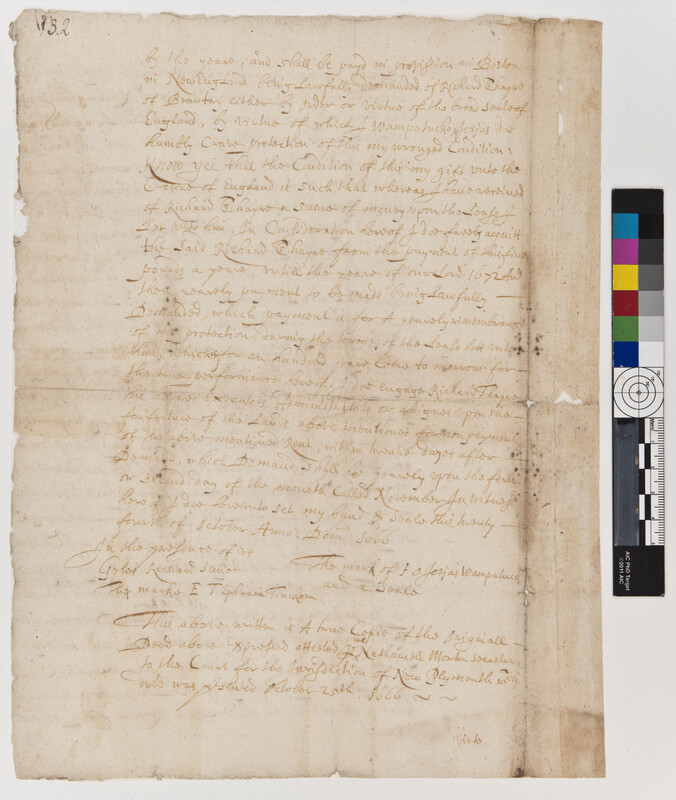 13.2
by the yeare, and shall be payd in provission in Boston
in NewEngland being Lawfully demanded of Richard Thayre
of Brantry either by order or virtue of the broad seale of
England, by virtue of which I Wampatucke Josias doe
humbly Crave protection of this my wronged Condition;
Know yee that the Condition of this my gift unto the
Crowne of England is such that whereas I have received
of Richard Thayre a sume of money upon the Lease I
unto him, In Consideration hereof I doe freely acquitt
the said Richard Thayre from the payment of this five
pounds a yeare, untill the yeare of our Lord 1672 And
the yearely payment to be made being Lawfully
Demanded, which payment is for A yearely remembrance
of protection, during the terme of the Lease sett unto
him, which is for an hundred yeare Come to morrow for
the true performance hereof I doe Engage Richard Thayre
his Executors Administrators or assignes upon the
forfeture of the Lands above mentioned for non payment
of the above mentioned Rent, within twenty dayes after
Demand, which Demand shall be yearely upon the first
or second day of the moneth Called November In Witnes
hereof I doe hereunto set my hand & Seale this twenty
fourth of October Anno: Dom: 1666
In the presence of us
Richard The mark of Josias Wampatuck
The marke E and Seale
This above written is A true Copie of the originall
Deed above Expressed attested Nathaniell Morton secretary
to the Court for the Jurisdiction of New Plymouth
was presented October 25th: 1666